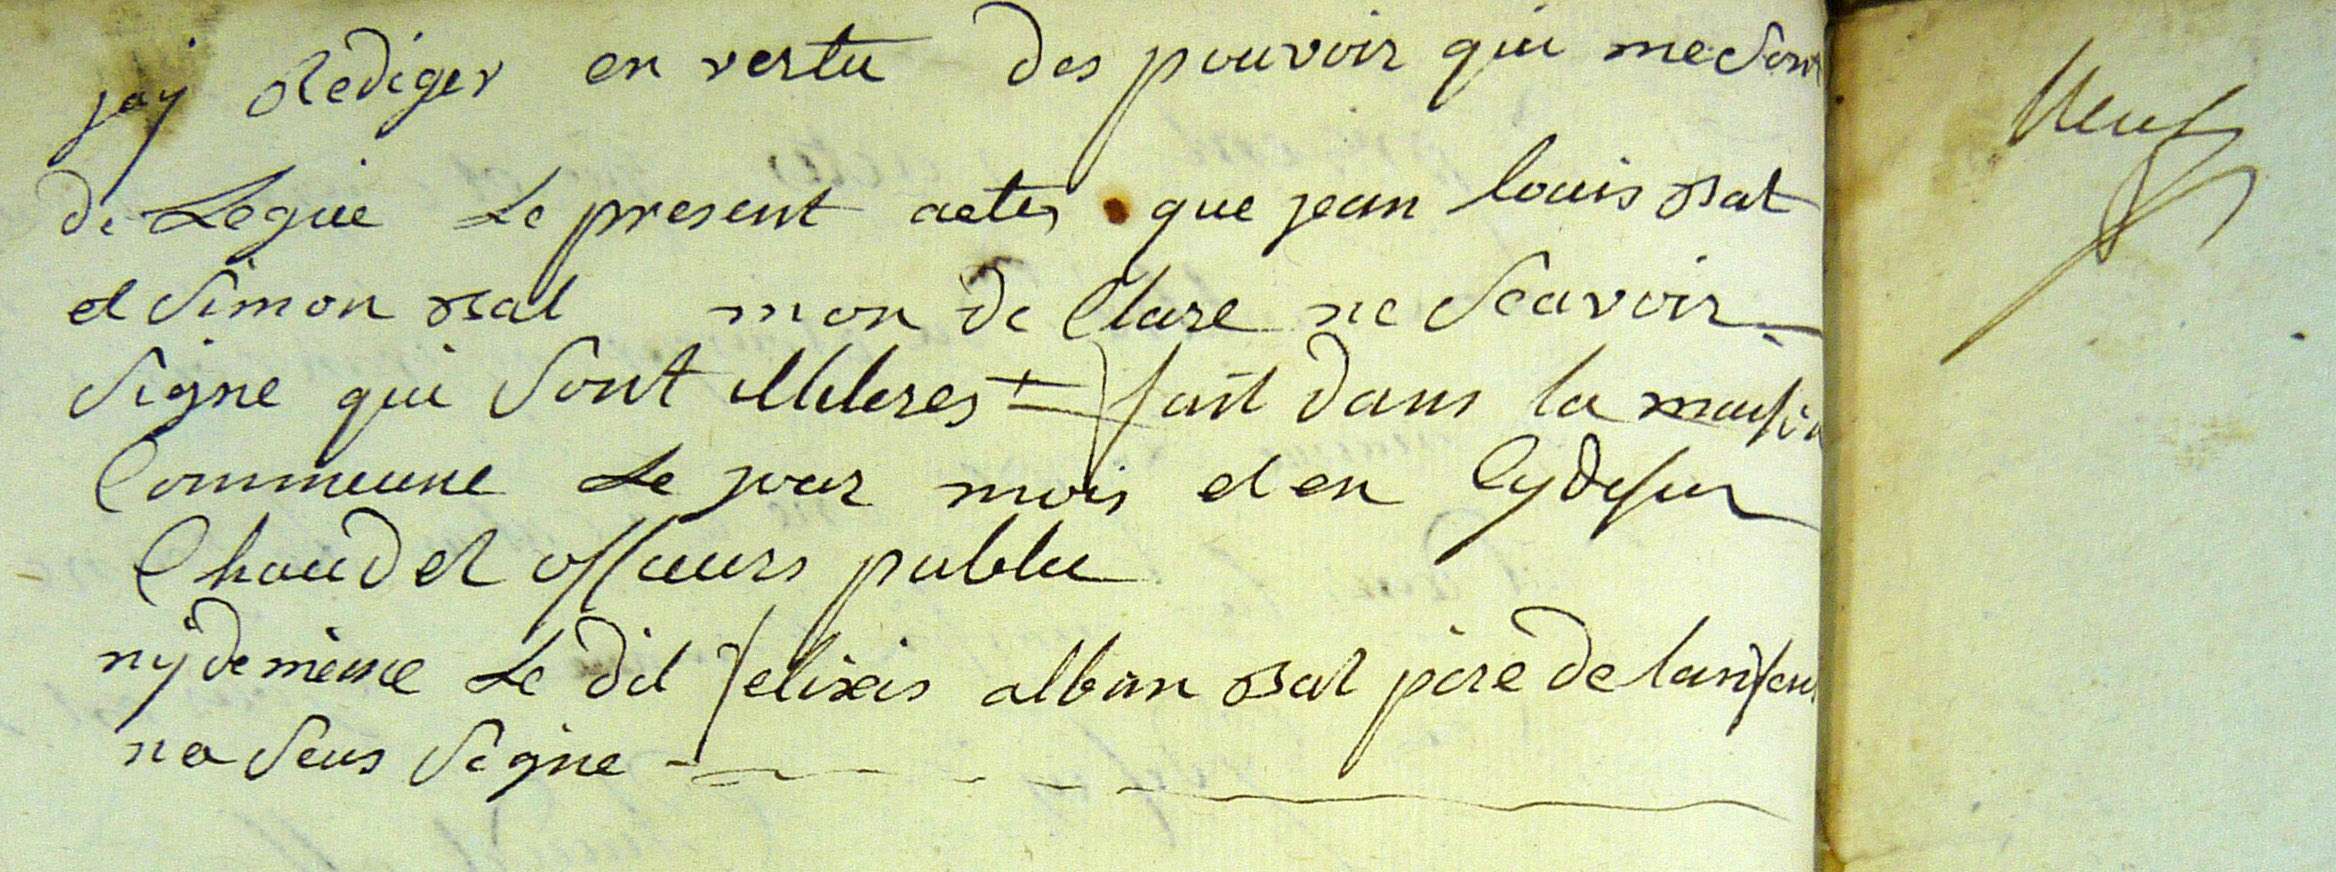 jay Rediger en vertu des pouvoir qui me sont
de Legue Le present actes que jean louis Rat
et Simon Rat mon de Clare ne Seavoir
Signe qui Sont illiteres fait dans la maison
Commeune Le jour mois et en Cy desus
Chaudet officiers public
ny de meme Le dit felixis alban Rat pere de lanfan
na Seus Signe
neuf